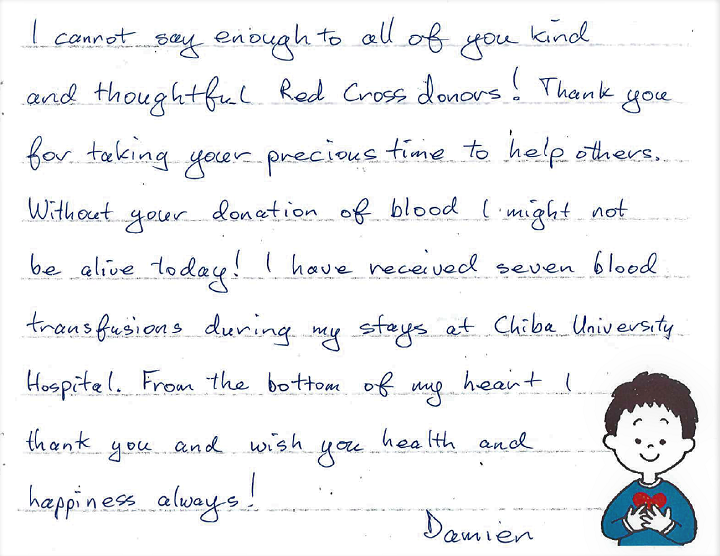 I cannot say enough to all of you kind
and thoughtful Red Cross donors! Thank you
for taking your precious time to help others.
Without your donation of blood I might not
be alive today! I have received seven blood
transfusions during my stays at Chiba University
Hospital. From the bottom of my heart I
thank you and wish you health and
happiness always!
Damien